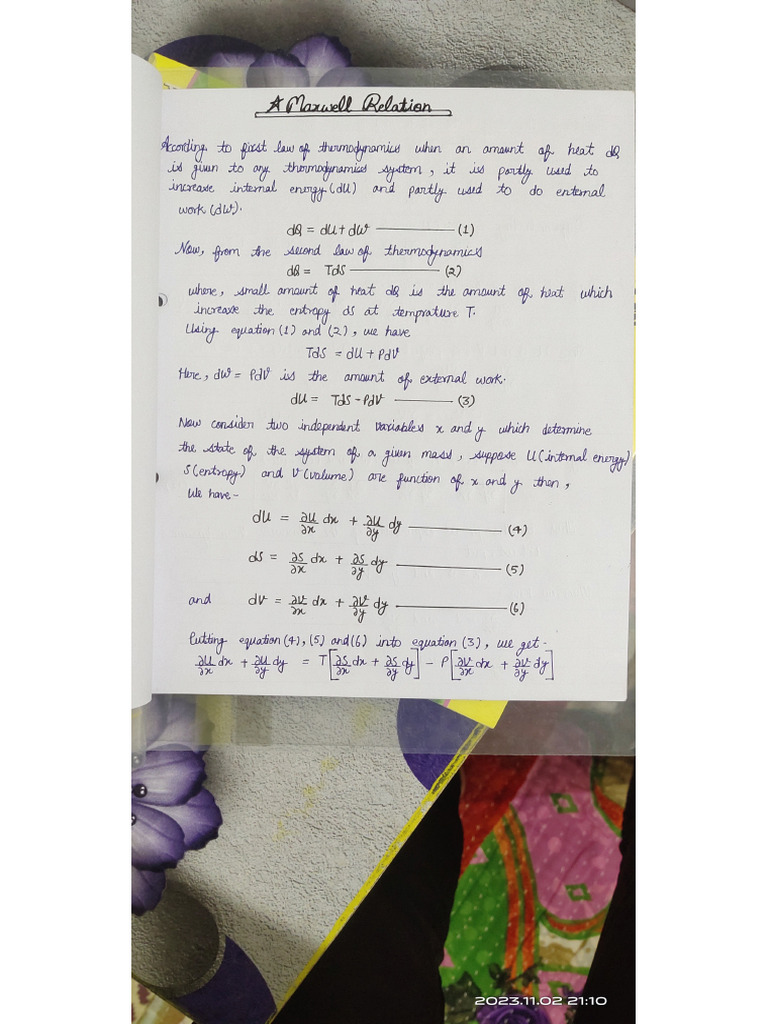 ☆ Maxwell Relation
According to first law of thermodynamics when an amount of heat dQ
is given to any thermodynamics system, it is partly used to
increase internal energy (dU) and partly used to do external
work (dW).
dQ = dU + dW ——— (1)
Now, from the second law of thermodynamics
dQ = TdS ——— (2)
where, small amount of heat dQ is the amount of heat which
increase the entropy dS at temprature T.
Using equation (1) and (2), we have
TdS = dU + PdV
Here, dW = PdV is the amount of external work.
dU = TdS - PdV ——— (3)
Now consider two independent variables x and y which determine
the state of the system of a given mass, suppose U (internal energy)
S (entropy) and V (volume) are function of x and y then,
We have -
dU = ∂U/∂x dx + ∂U/∂y dy ——— (4)
dS = ∂S/∂x dx + ∂S/∂y dy ——— (5)
and dV = ∂V/∂x dx + ∂V/∂y dy ——— (6)
Putting equation (4), (5) and (6) into equation (3), we get -
∂U/∂x dx + ∂U/∂y dy = T[∂S/∂x dx + ∂S/∂y dy] - P[∂V/∂x dx + ∂V/∂y dy]
2023.11.02 21:10